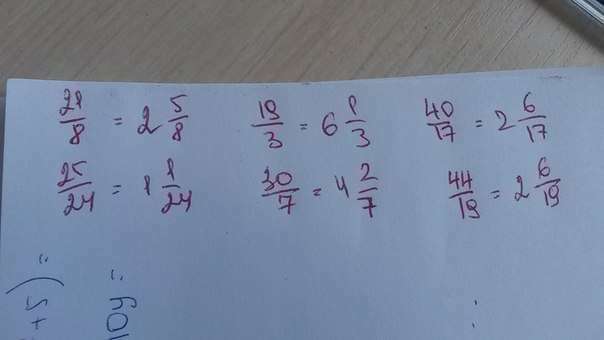 21/8 = 2 5/8   19/3 = 6 1/3   40/17 = 2 6/17
25/24 = 1 1/24   30/7 = 4 2/7   44/19 = 2 6/19
+5) =
10y =
: